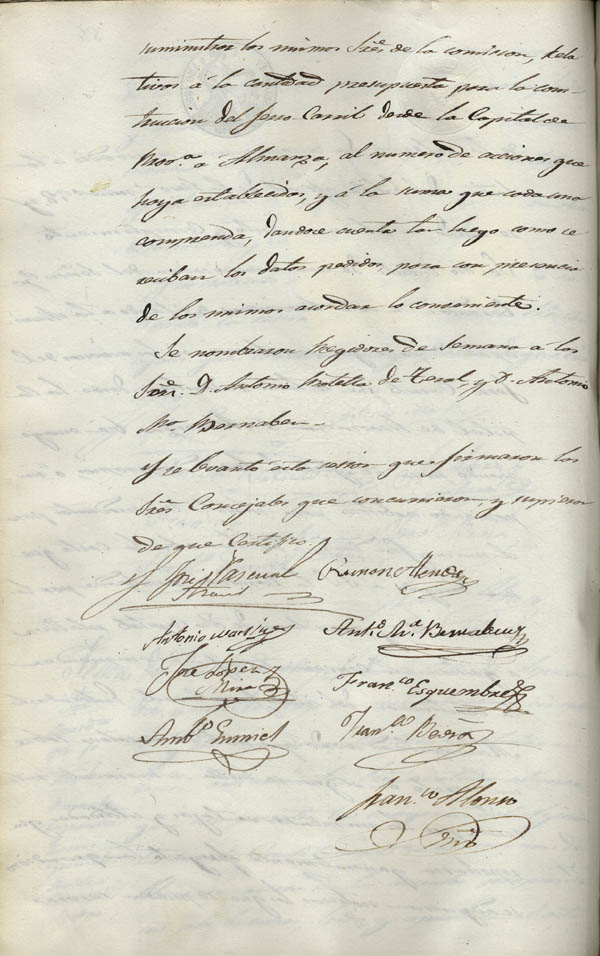 suministrar los mismos Sres. de la comision, rela
tivos á la cantidad presupuesta para la cons-
truccion del ferro Carril desde la Capital de
Prov.a a Almanza, al numero de acciones que
haya establecidos, y á la suma que cada una
comprenda, dandose cuenta tan luego como se
reciban los datos pedidos, para con presencia
de los mismos acordar lo conveniente.
Se nombraron Regidores de Semana a los
Sres. D. Antonio de Teral, y D. Antonio
M.a Bernabeu.
Y se levantó esta sesion que firmaron los
Sres. Concejales que concurrieron y supieron
de que Certifico.
José Pascual Ramon
Antonio Martinez Ant.o M.a Bernabeu
Jose Lopez Fran.co Esquembre
Mira
Amb.o Fran.co
Fran.co Alonso